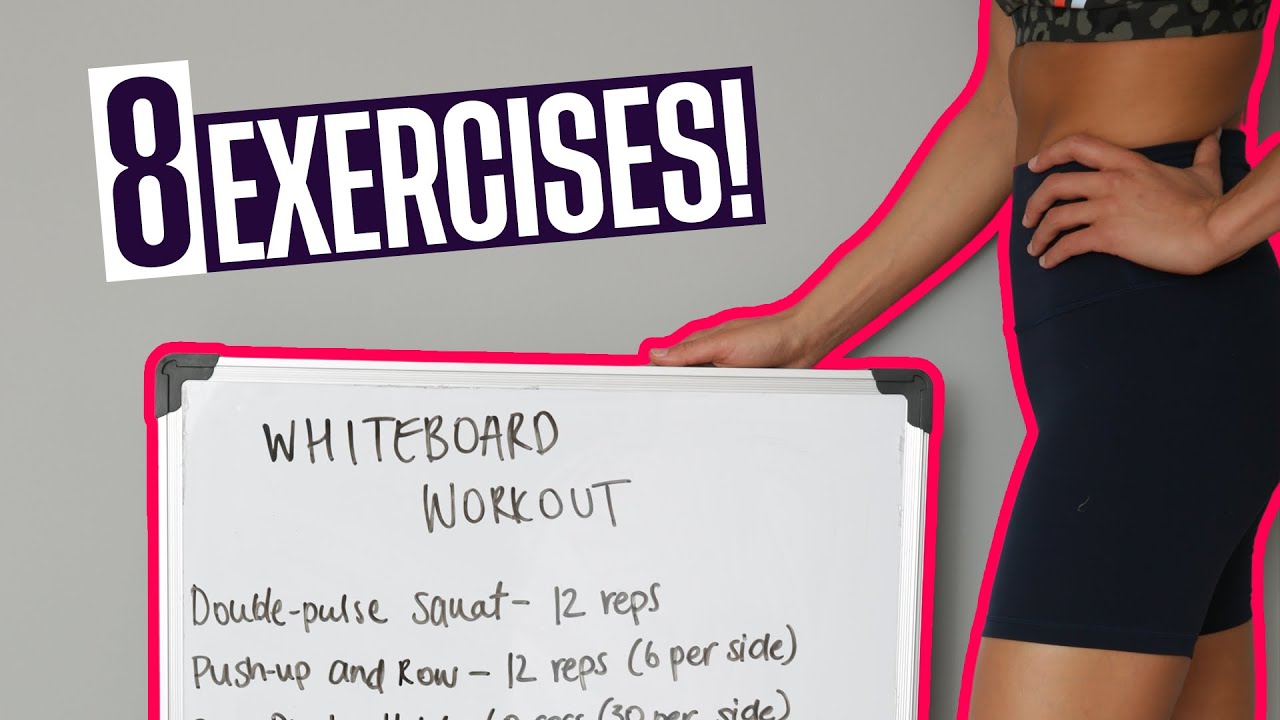 8 EXERCISES!
WHITEBOARD
WORKOUT
Double-pulse squat - 12 reps
Push-up and Row - 12 reps (6 per side)
(30 per side)